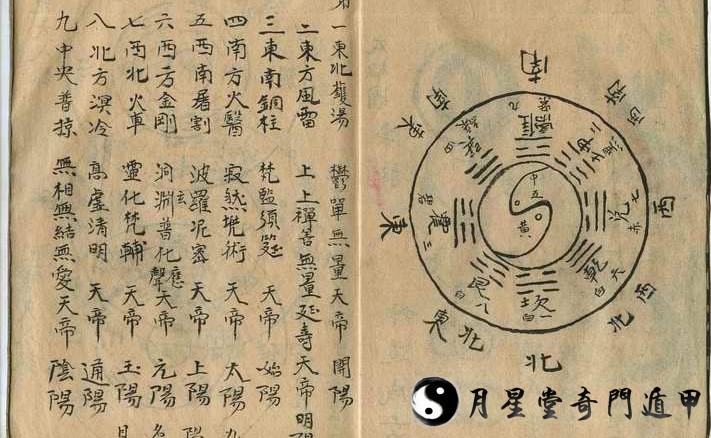 南
西南
西
西北
北
東北
東
東南
九紫離
二黑坤
七赤兌
六白乾
一白坎
八白艮
三碧震
四綠巽
中五黃
一東北鑊湯 鬱單無量天帝 開陽
二東方風雷 上上禪善無量延壽天帝 明陽
三東南銅柱 梵監須筵 天帝 始陽
四南方火醫 寂然梵術 天帝 太陽
五西南屠割 波羅泥密 天帝 上陽
六西方金剛 洞淵玄普化應聲天帝 元陽
七西北火車 靈化梵輔 天帝 玉陽
八北方溟冷 高虛清明 天帝 通陽
九中央普掠 無相無結無愛天帝 陰陽
月星堂奇門遁甲